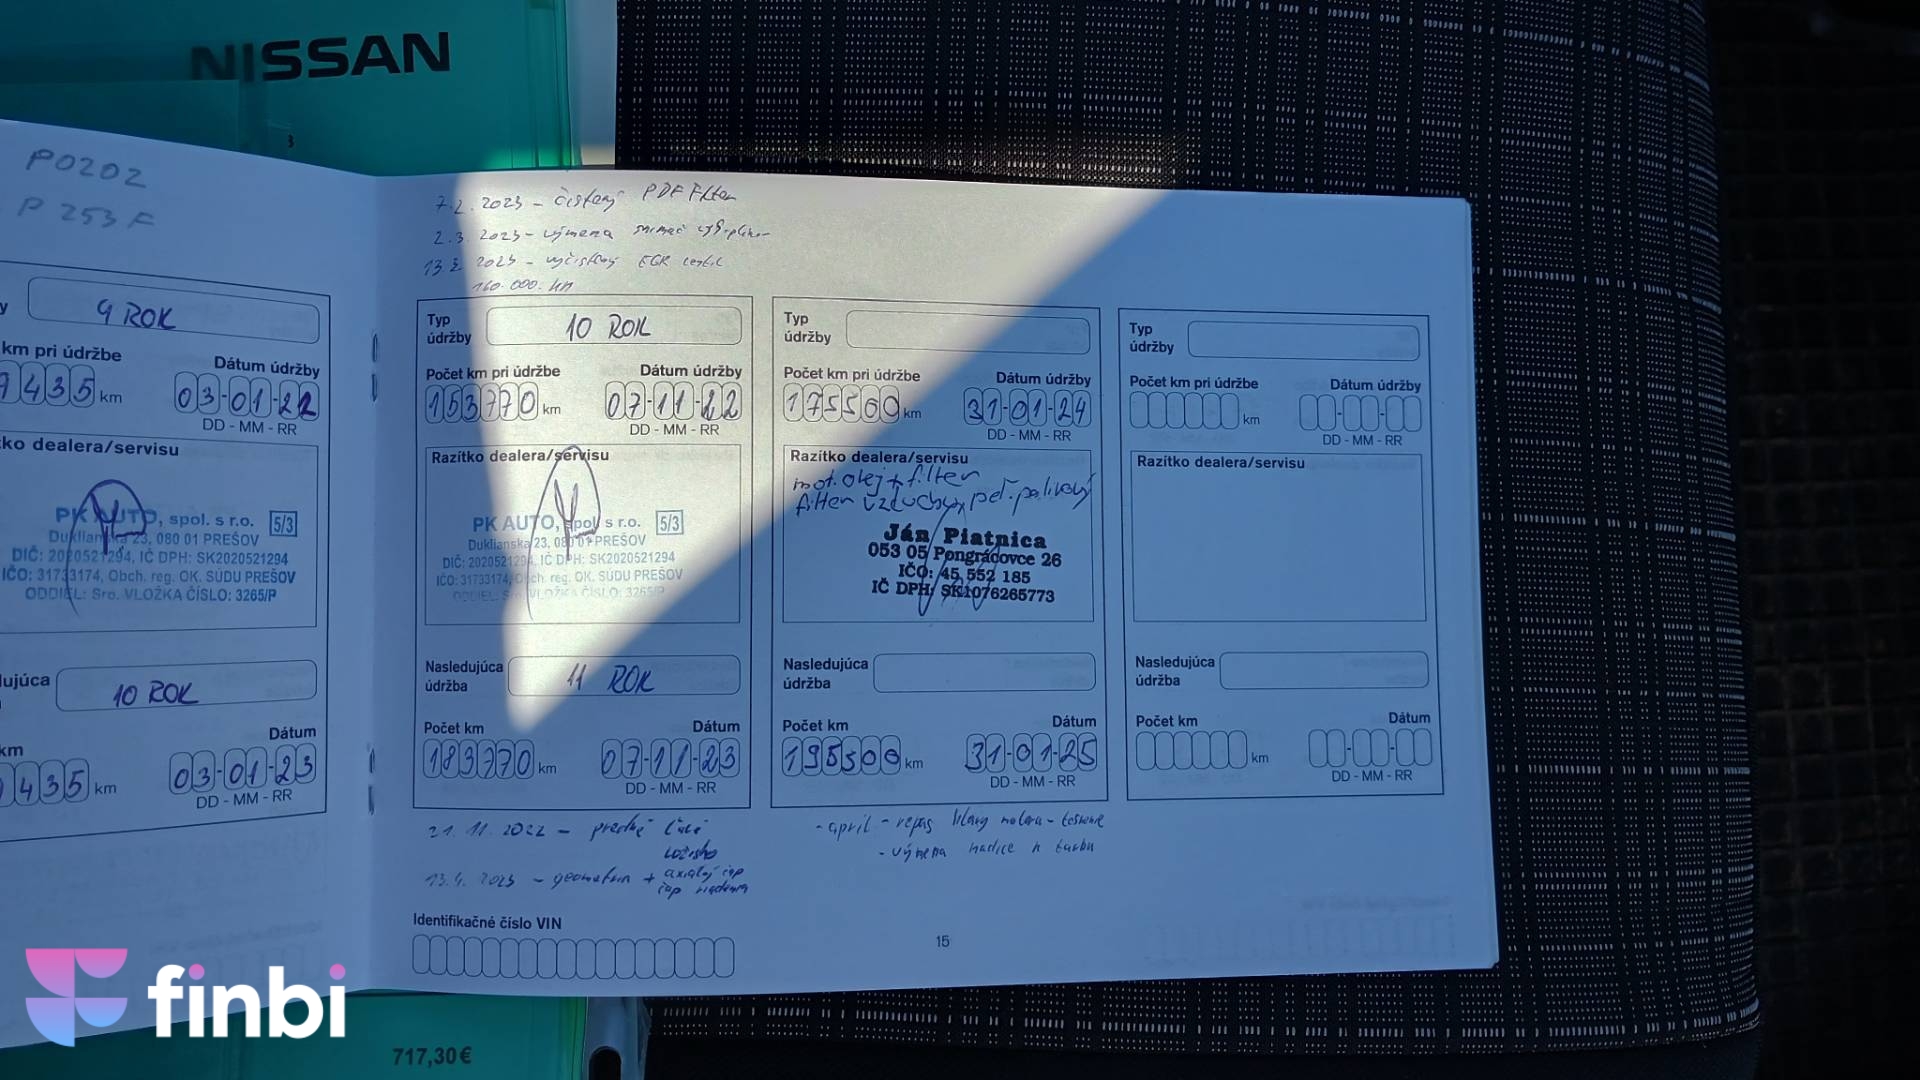 NISSAN
3
P0202
P 253 F
9 ROK
km pri údržbe
Dátum údržby
9435 km
03-01-22
DD - MM - RR
ko dealera/servisu
PK AUTO, spol. s r.o. 5/3
Duklianska 23, 080 01 PREŠOV
DIČ: 2020521294, IČ DPH: SK2020521294
IČO: 31733174, Obch. reg. OK. SÚDU PREŠOV
ODDIEL: Sro. VLOŽKA ČÍSLO: 3265/P
dujúca
10 ROK
km
Dátum
9435 km
03-01-23
DD - MM - RR
7.2. 2023 - čistený PDF Filter
2.3. 2023 - výmena snímač
13.3. 2023 - vyčistený EGR ventil
160.000. km
Typ údržby
10 ROK
Počet km pri údržbe
Dátum údržby
153770 km
07-11-22
DD - MM - RR
Razítko dealera/servisu
PK AUTO, spol. s r.o. 5/3
Duklianska 23, 080 01 PREŠOV
DIČ: 2020521294, IČ DPH: SK2020521294
IČO: 31733174, Obch. reg. OK. SÚDU PREŠOV
ODDIEL: Sro. VLOŽKA ČÍSLO: 3265/P
Nasledujúca údržba
11 ROK
Počet km
Dátum
183770 km
07-11-23
DD - MM - RR
21. 11. 2022 - predné ľavé
ložisko
13.4. 2023 - geometria + axiálny čap
čap riadenia
Identifikačné číslo VIN
Typ údržby
Počet km pri údržbe
Dátum údržby
175500 km
31-01-24
DD - MM - RR
Razítko dealera/servisu
mot. olej + filter
filter vzduchový, peľ. palivový
Ján Piatnica
053 05 Pongrácovce 26
IČO: 45 552 185
IČ DPH: SK1076265773
Nasledujúca údržba
Počet km
Dátum
195500 km
31-01-25
DD - MM - RR
- apríl - repas hlavy motora - tesnenie
- výmena hadice k turbu
15
Typ údržby
Počet km pri údržbe
Dátum údržby
km
DD - MM - RR
Razítko dealera/servisu
Nasledujúca údržba
Počet km
Dátum
km
DD - MM - RR
finbi
717,30€